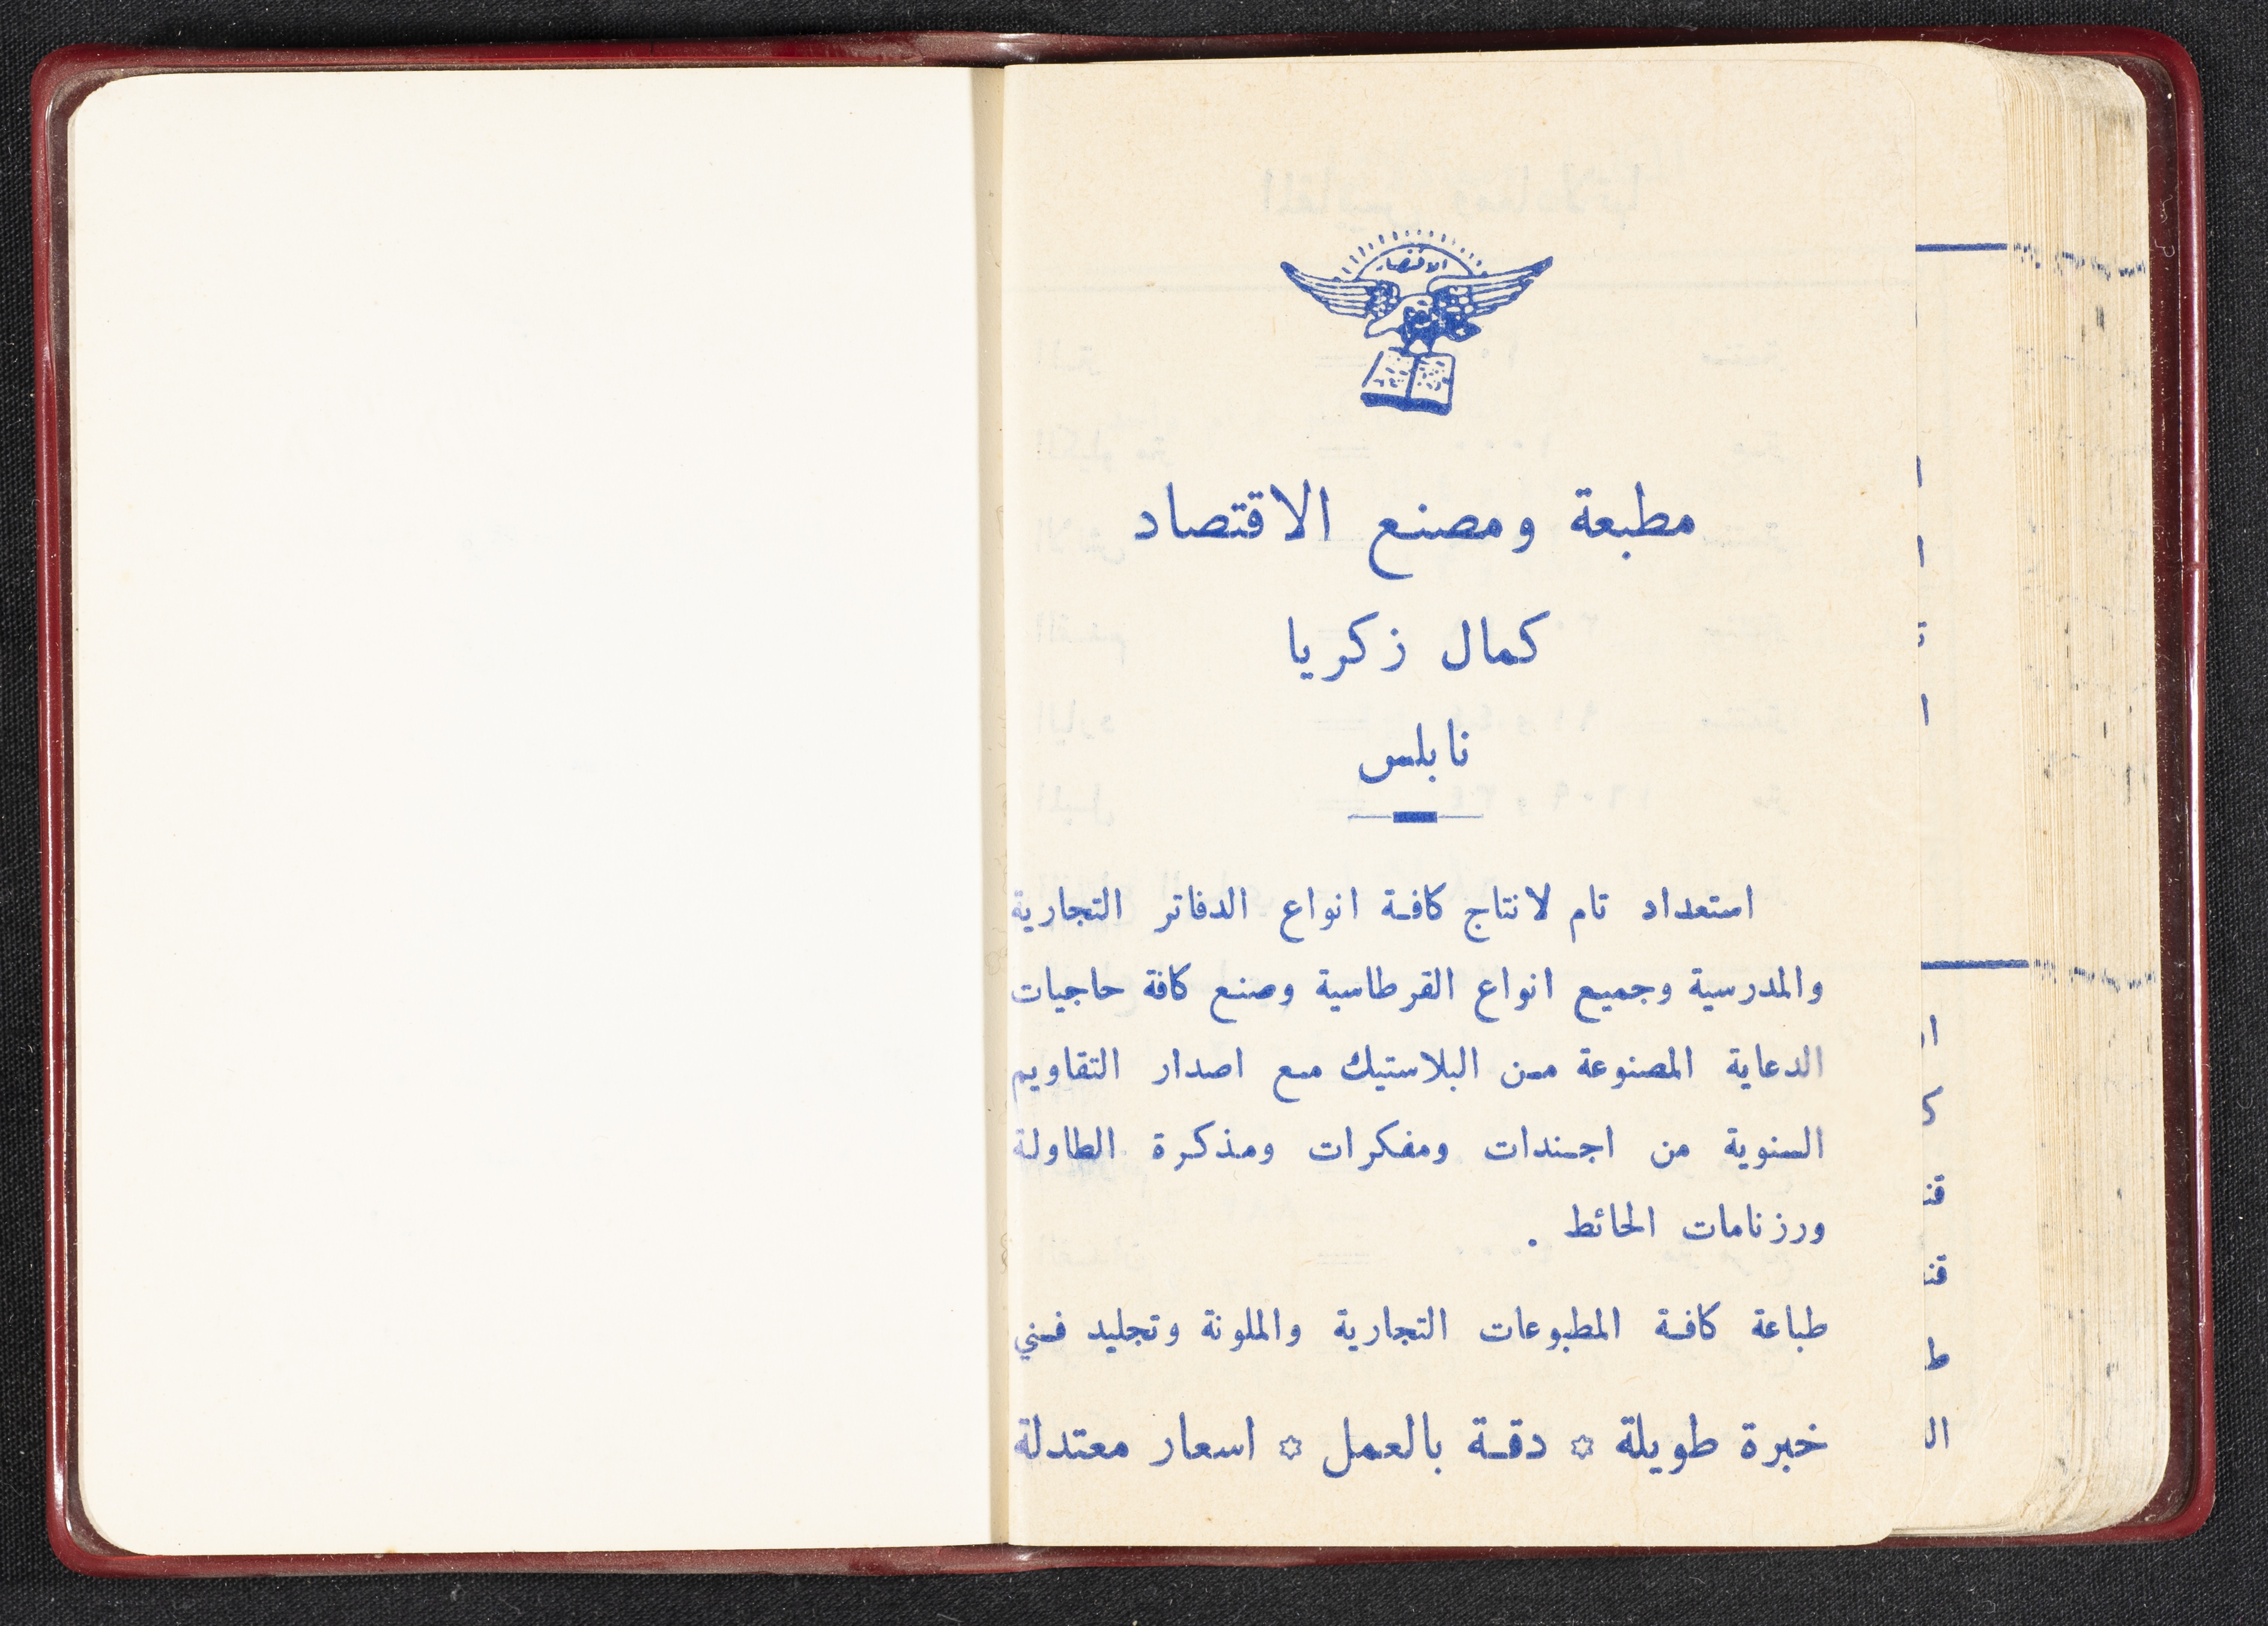 الاقتصاد
مطبعة ومصنع الاقتصاد
كمال زكريا
نابلس
استعداد تام لانتاج كافة انواع الدفاتر التجارية
والمدرسية وجميع انواع القرطاسية وصنع كافة حاجيات
الدعاية المصنوعة من البلاستيك مع اصدار التقاويم
السنوية من اجندات ومفكرات ومذكرة الطاولة
ورزنامات الحائط .
طباعة كافة المطبوعات التجارية والملونة وتجليد فني
خبرة طويلة ✡ دقة بالعمل ✡ اسعار معتدلة